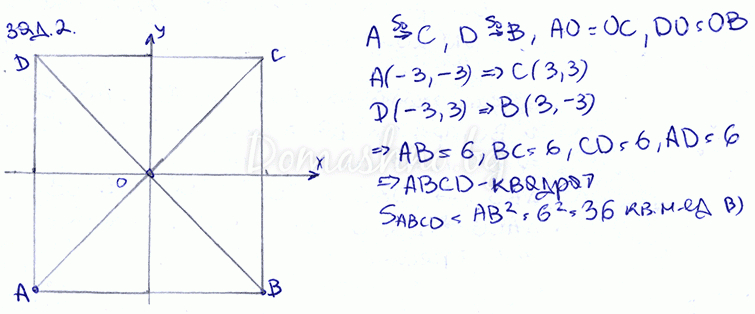 зад. 2.
y
D
C
O
x
A
B
A S₀⇒ C, D S₀⇒ B, AO = OC, DO = OB
A(-3,-3) => C(3,3)
D(-3,3) => B(3,-3)
=> AB = 6, BC = 6, CD = 6, AD = 6
=> ABCD - квадрат
S_ABCD = AB² = 6² = 36 кв. м. ед B)